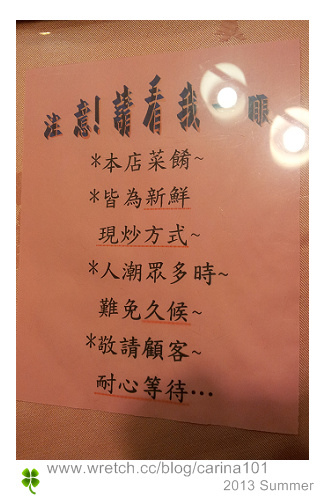 注意!請看我一眼
*本店菜餚~
*皆為新鮮
現炒方式~
*人潮眾多時~
難免久候~
*敬請顧客~
耐心等待…
www.wretch.cc/blog/carina101
2013 Summer